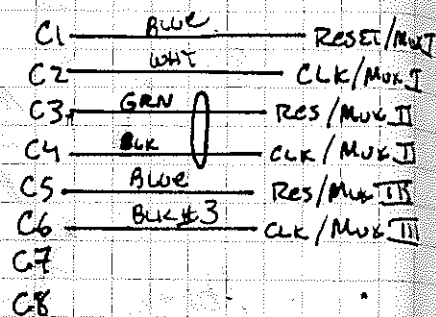 C1 BLUE RESET/MUX I
C2 WHT CLK/MUX I
C3 GRN RES/MUX II
C4 BLK CLK/MUX II
C5 BLUE RES/MUX III
C6 BLK#3 CLK/MUX III
C7
C8